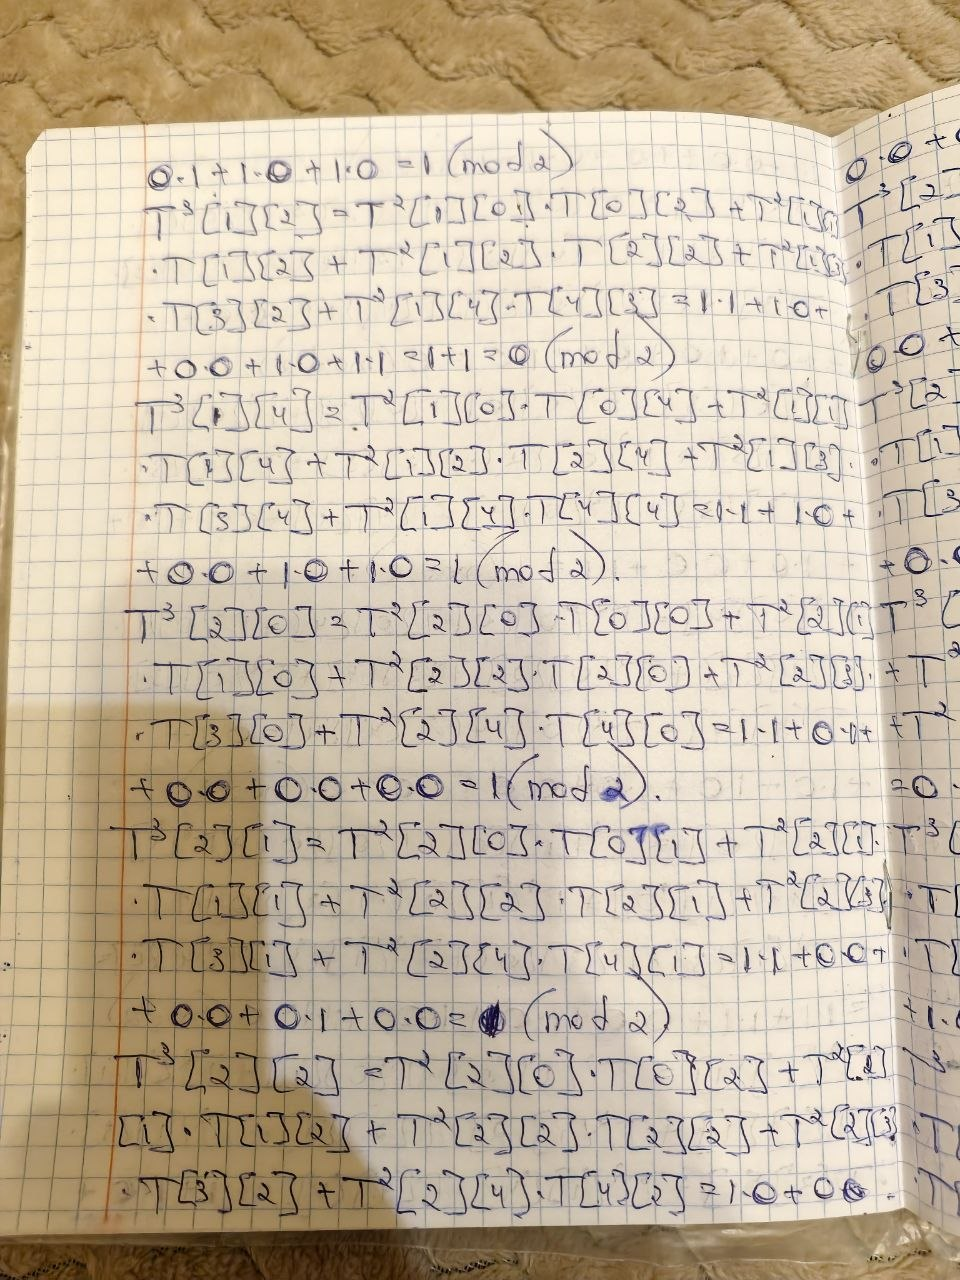 0·1+1·0+1·0=1(mod 2)
T³[1][2]=T²[1][0]·T[0][2]+T²[1][1]
·T[1][2]+T²[1][2]·T[2][2]+T²[1][3]
·T[3][2]+T²[1][4]·T[4][3]=1·1+1·0+
+0·0+1·0+1·1=1+1=0(mod 2)
T³[1][4]=T²[1][0]·T[0][4]+T²[1][1]
·T[1][4]+T²[1][2]·T[2][4]+T²[1][3]·
·T[3][4]+T²[1][4]·T[4][4]=1·1+1·0+
+0·0+1·0+1·0=1(mod 2).
T³[2][0]=T²[2][0]·T[0][0]+T²[2][1]
·T[1][0]+T²[2][2]·T[2][0]+T²[2][3]·
·T[3][0]+T²[2][4]·T[4][0]=1·1+0·1+
+0·0+0·0+0·0=1(mod 2).
T³[2][1]=T²[2][0]·T[0][1]+T²[2][1]·
·T[1][1]+T²[2][2]·T[2][1]+T²[2][3]
·T[3][1]+T²[2][4]·T[4][1]=1·1+0·0+
+0·0+0·1+0·0= (mod 2)
T³[2][2]=T²[2][0]·T[0][2]+T²[2]
[1]·T[1][2]+T²[2][2]·T[2][2]+T²[2][3]
·T[3][2]+T²[2][4]·T[4][2]=1·0+0·0
0·0+
T³[2
·T[1]
·T[3
0·0+
T³[2
·T[1]
·T[3
+0·0
T³[
+T²
+T²
=0·
T³[
·T[
·T[
+1·
T³
·T[
·T[